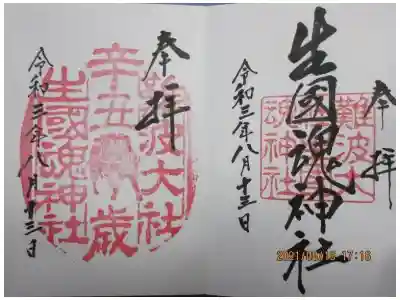 奉拝
難波大
生國魂神社
魂神社
令和三年八月十三日
17:16
奉拝
難波大社
辛丑歳
生國魂神社
令和三年八月十三日